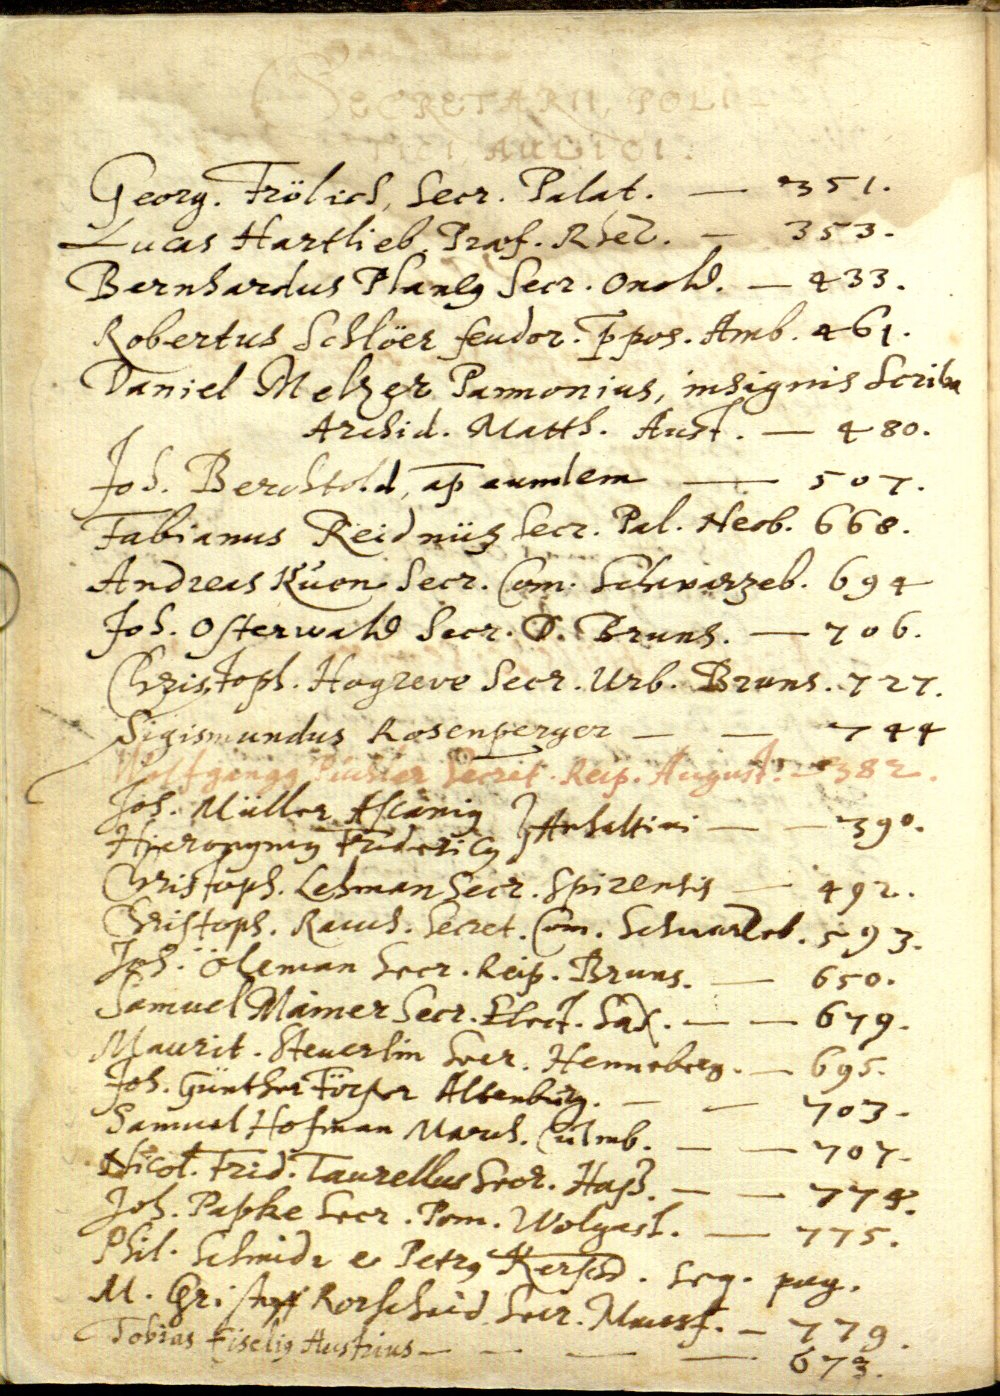 SECRETARII, POLI-
TICI, AULICI.
Georg. Frölich, Secr. Palat. — 351.
Lucas Hartlieb, Præf. Rhed. — 353.
Bernhardus Secr. Onold. — 433.
Robertus Schlöer feudor. ppos. Amb. 461.
Daniel Melzer Pannonius, insignis Scriba
Archid. Matth. Aust. — 480.
Joh. Berchtold, ap eumdem — 507.
Fabianus Reidnüz Secr. Pal. Neob. 668.
Andreas Kuon Secr. Com. Schwarzeb. 694
Joh. Osterwald Secr. D. Bruns. — 706.
Christoph. Hagreve Secr. Urb. Bruns. 727.
Sigismundus Rosenperger — — 744
Wolfgang Secret. Reip. August. — 382.
Joh. Müller Ascanig } Anhaltini — — 390.
Hieronymg Fridericg
Christoph. Lehman Secr. Spirensis — 492.
Christoph. Rauch. Secret. Com. Schwarzeb. 593.
Joh. Öleman Secr. Reip. Bruns. — 650.
Samuel Mamer Secr. Elect. Sax. — — 679.
Maurit. Steuerlin Secr. Henneberg. — 695.
Joh. Günther Förster Altenburg. — — 703.
Samuel Hofman March. Culmb. — — 707.
Nicol. Frid. Taurellus Secr. Haß. — — 774.
Joh. Papke Secr. Pom. Wolgast. — 775.
Phil. Schmidt e Petrg . seq. pag.
M. Rorscheid Secr. Mansf. — 779.
Tobias Fiselig Austrius — — — — 673.